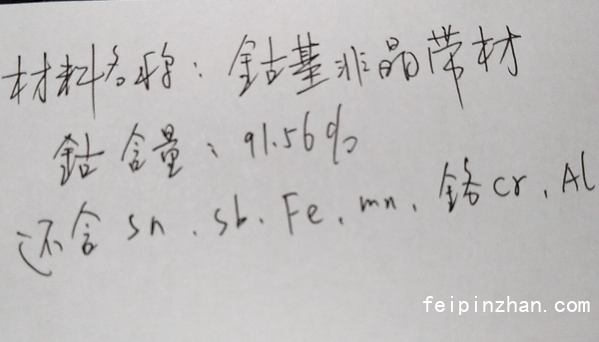 材料名称:钴基非晶带材
钴含量:91.56%
还含sn、sb、Fe、mn、铬cr、Al
feipinzhan.com